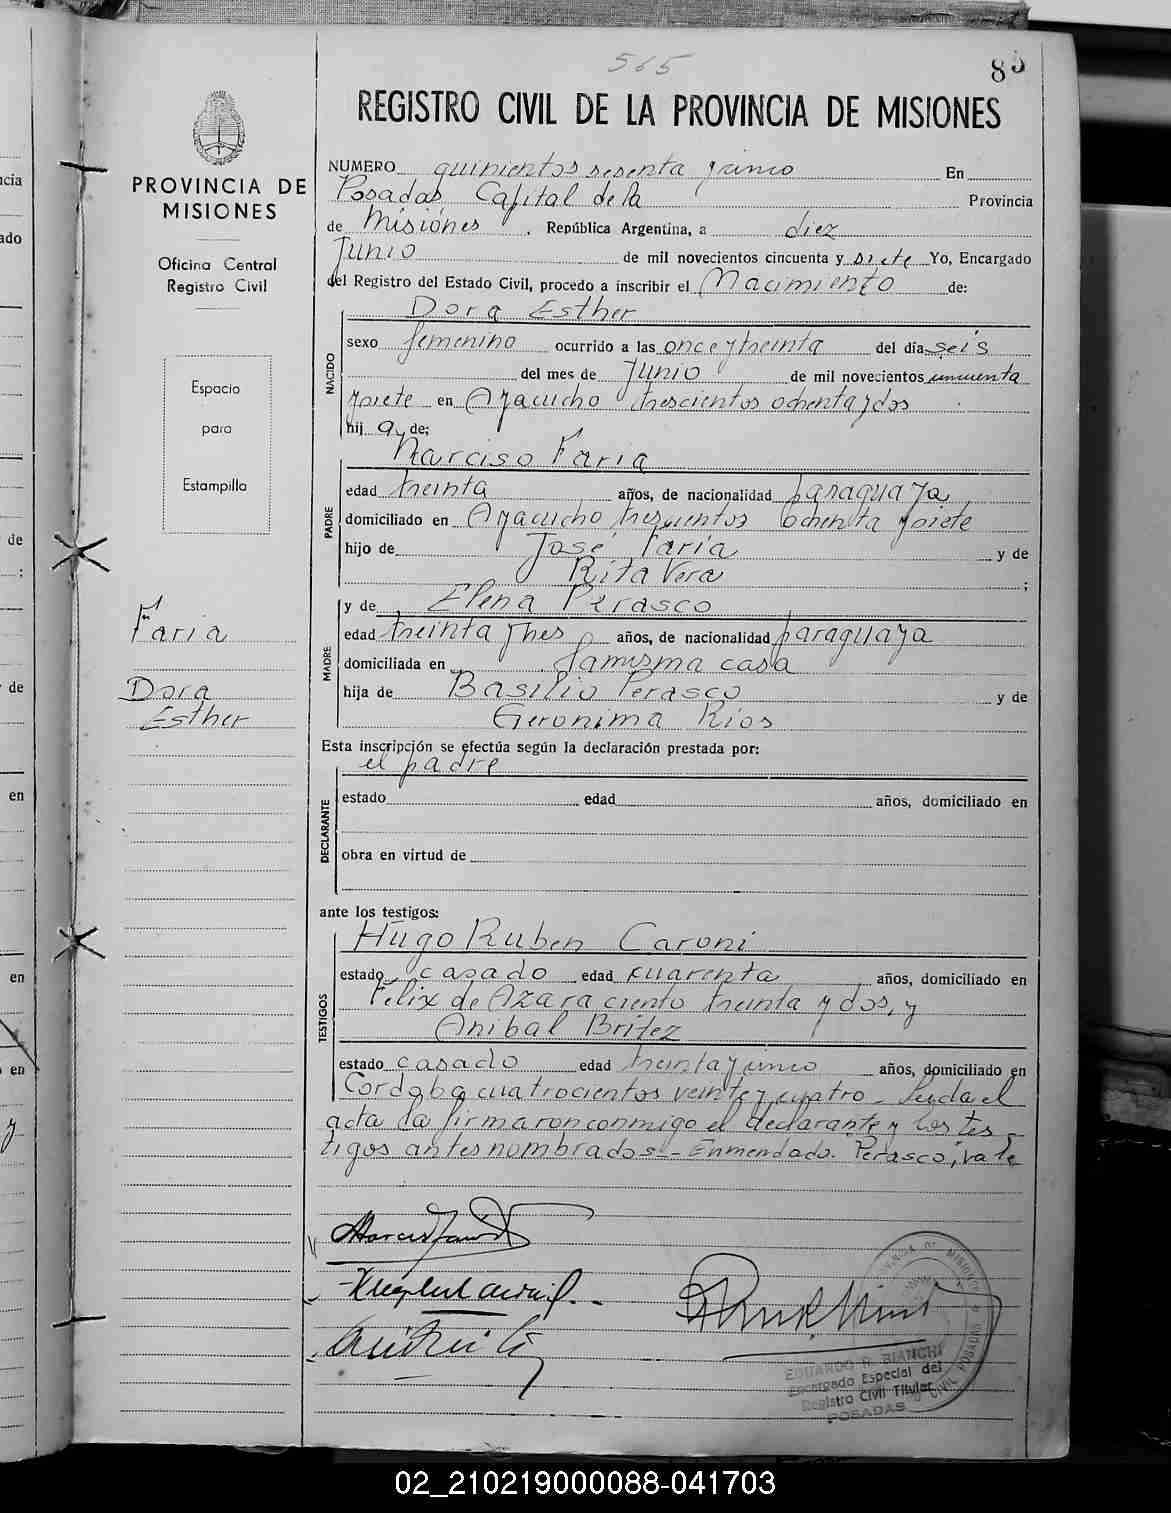 565
85
REGISTRO CIVIL DE LA PROVINCIA DE MISIONES
PROVINCIA DE
MISIONES
Oficina Central
Registro Civil
Espacio
para
Estampilla
Faria
Dora
Esther
NUMERO quinientos sesenta y cinco En
Posadas Capital de la Provincia
de Misiones, República Argentina, a diez
Junio de mil novecientos cincuenta y siete Yo, Encargado
del Registro del Estado Civil, procedo a inscribir el Nacimiento de:
Dora Esther
NACIDO
sexo femenino ocurrido a las once y treinta del día seis
del mes de Junio de mil novecientos cincuenta
y siete en Ayacucho trescientos ochenta y dos
hij a, de;
Narciso Faria
PADRE
edad treinta años, de nacionalidad paraguaya
domiciliado en Ayacucho trescientos ochenta y siete
hijo de José Faria y de
Rita Vera ;
MADRE
y de Elena Perasco
edad treinta y tres años, de nacionalidad paraguaya
domiciliada en la misma casa
hija de Basilio Perasco y de
Geronima Rios
Esta inscripción se efectúa según la declaración prestada por:
el padre
DECLARANTE
estado edad años, domiciliado en
obra en virtud de
ante los testigos:
TESTIGOS
Hugo Ruben Caroni
estado casado edad cuarenta años, domiciliado en
Felix de Azara ciento treinta y dos, y
Anibal Britez
estado casado edad treinta y cinco años, domiciliado en
Cordoba cuatrocientos veinte y cuatro - Leida el
acta la firmaron conmigo el declarante y los tes
tigos antes nombrados - Enmendado. Perasco, vale
EDUARDO R. BIANCHI
Encargado Especial del
Registro Civil Titular
POSADAS
02_210219000088-041703